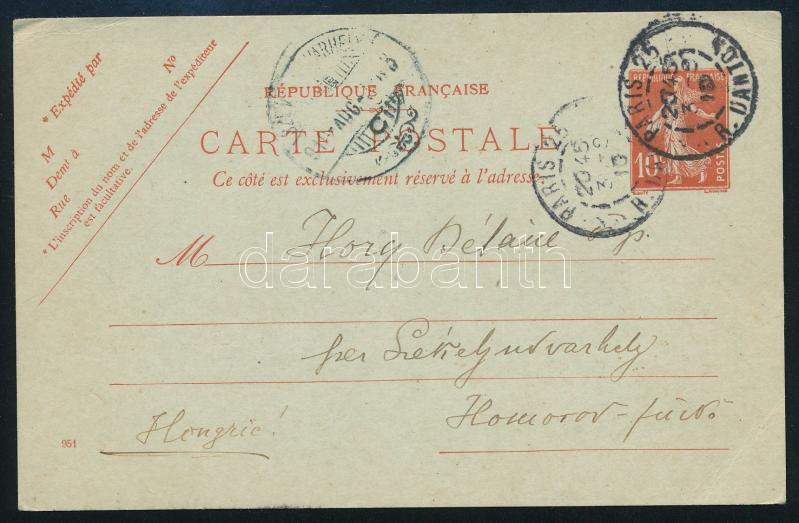 Nº
* Expédié par
M
Demt à
Rue
* L'inscription du nom et de l'adresse de l'expéditeur
est facultative.
RÉPUBLIQUE FRANÇAISE
CARTE POSTALE
Ce côté est exclusivement réservé à l'adresse
RÉPUBLIQUE FRANÇAISE
10
POSTES
PARIS 25
R. DANTON
PARIS 25
20 45
10
M Hory Béláné
darabanth
per Székelyudvarhely
Homorod-fürdő
Hongrie!
951